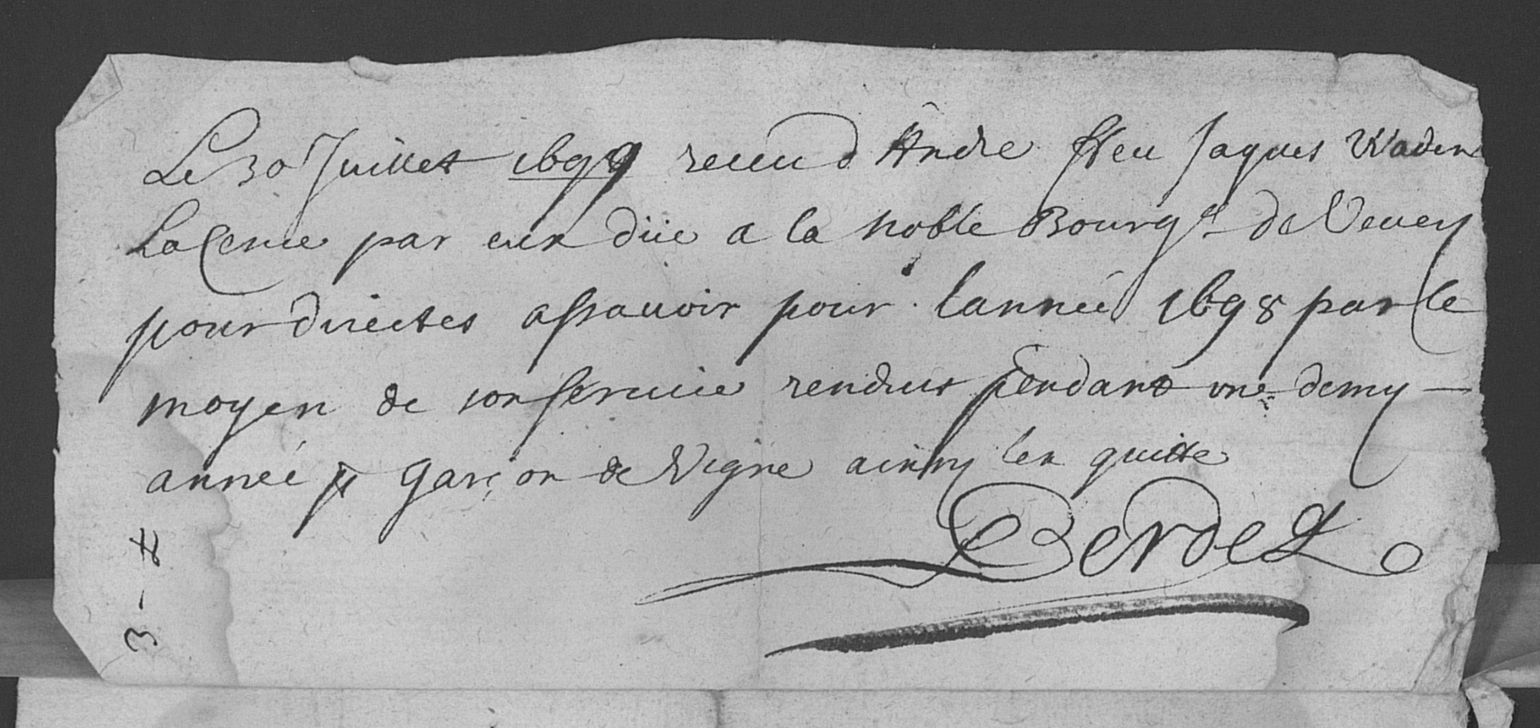 Le 30 Juillet 1699 receu d André ffeu Jaques
La Cense par eux düe a la noble Bourg.e de Vevey
pour directes assavoir pour lannée 1698 par le
moyen de son service rendus pendant une demy
année p garçon de Vigne ainsy len quitte
Berdet
3 -